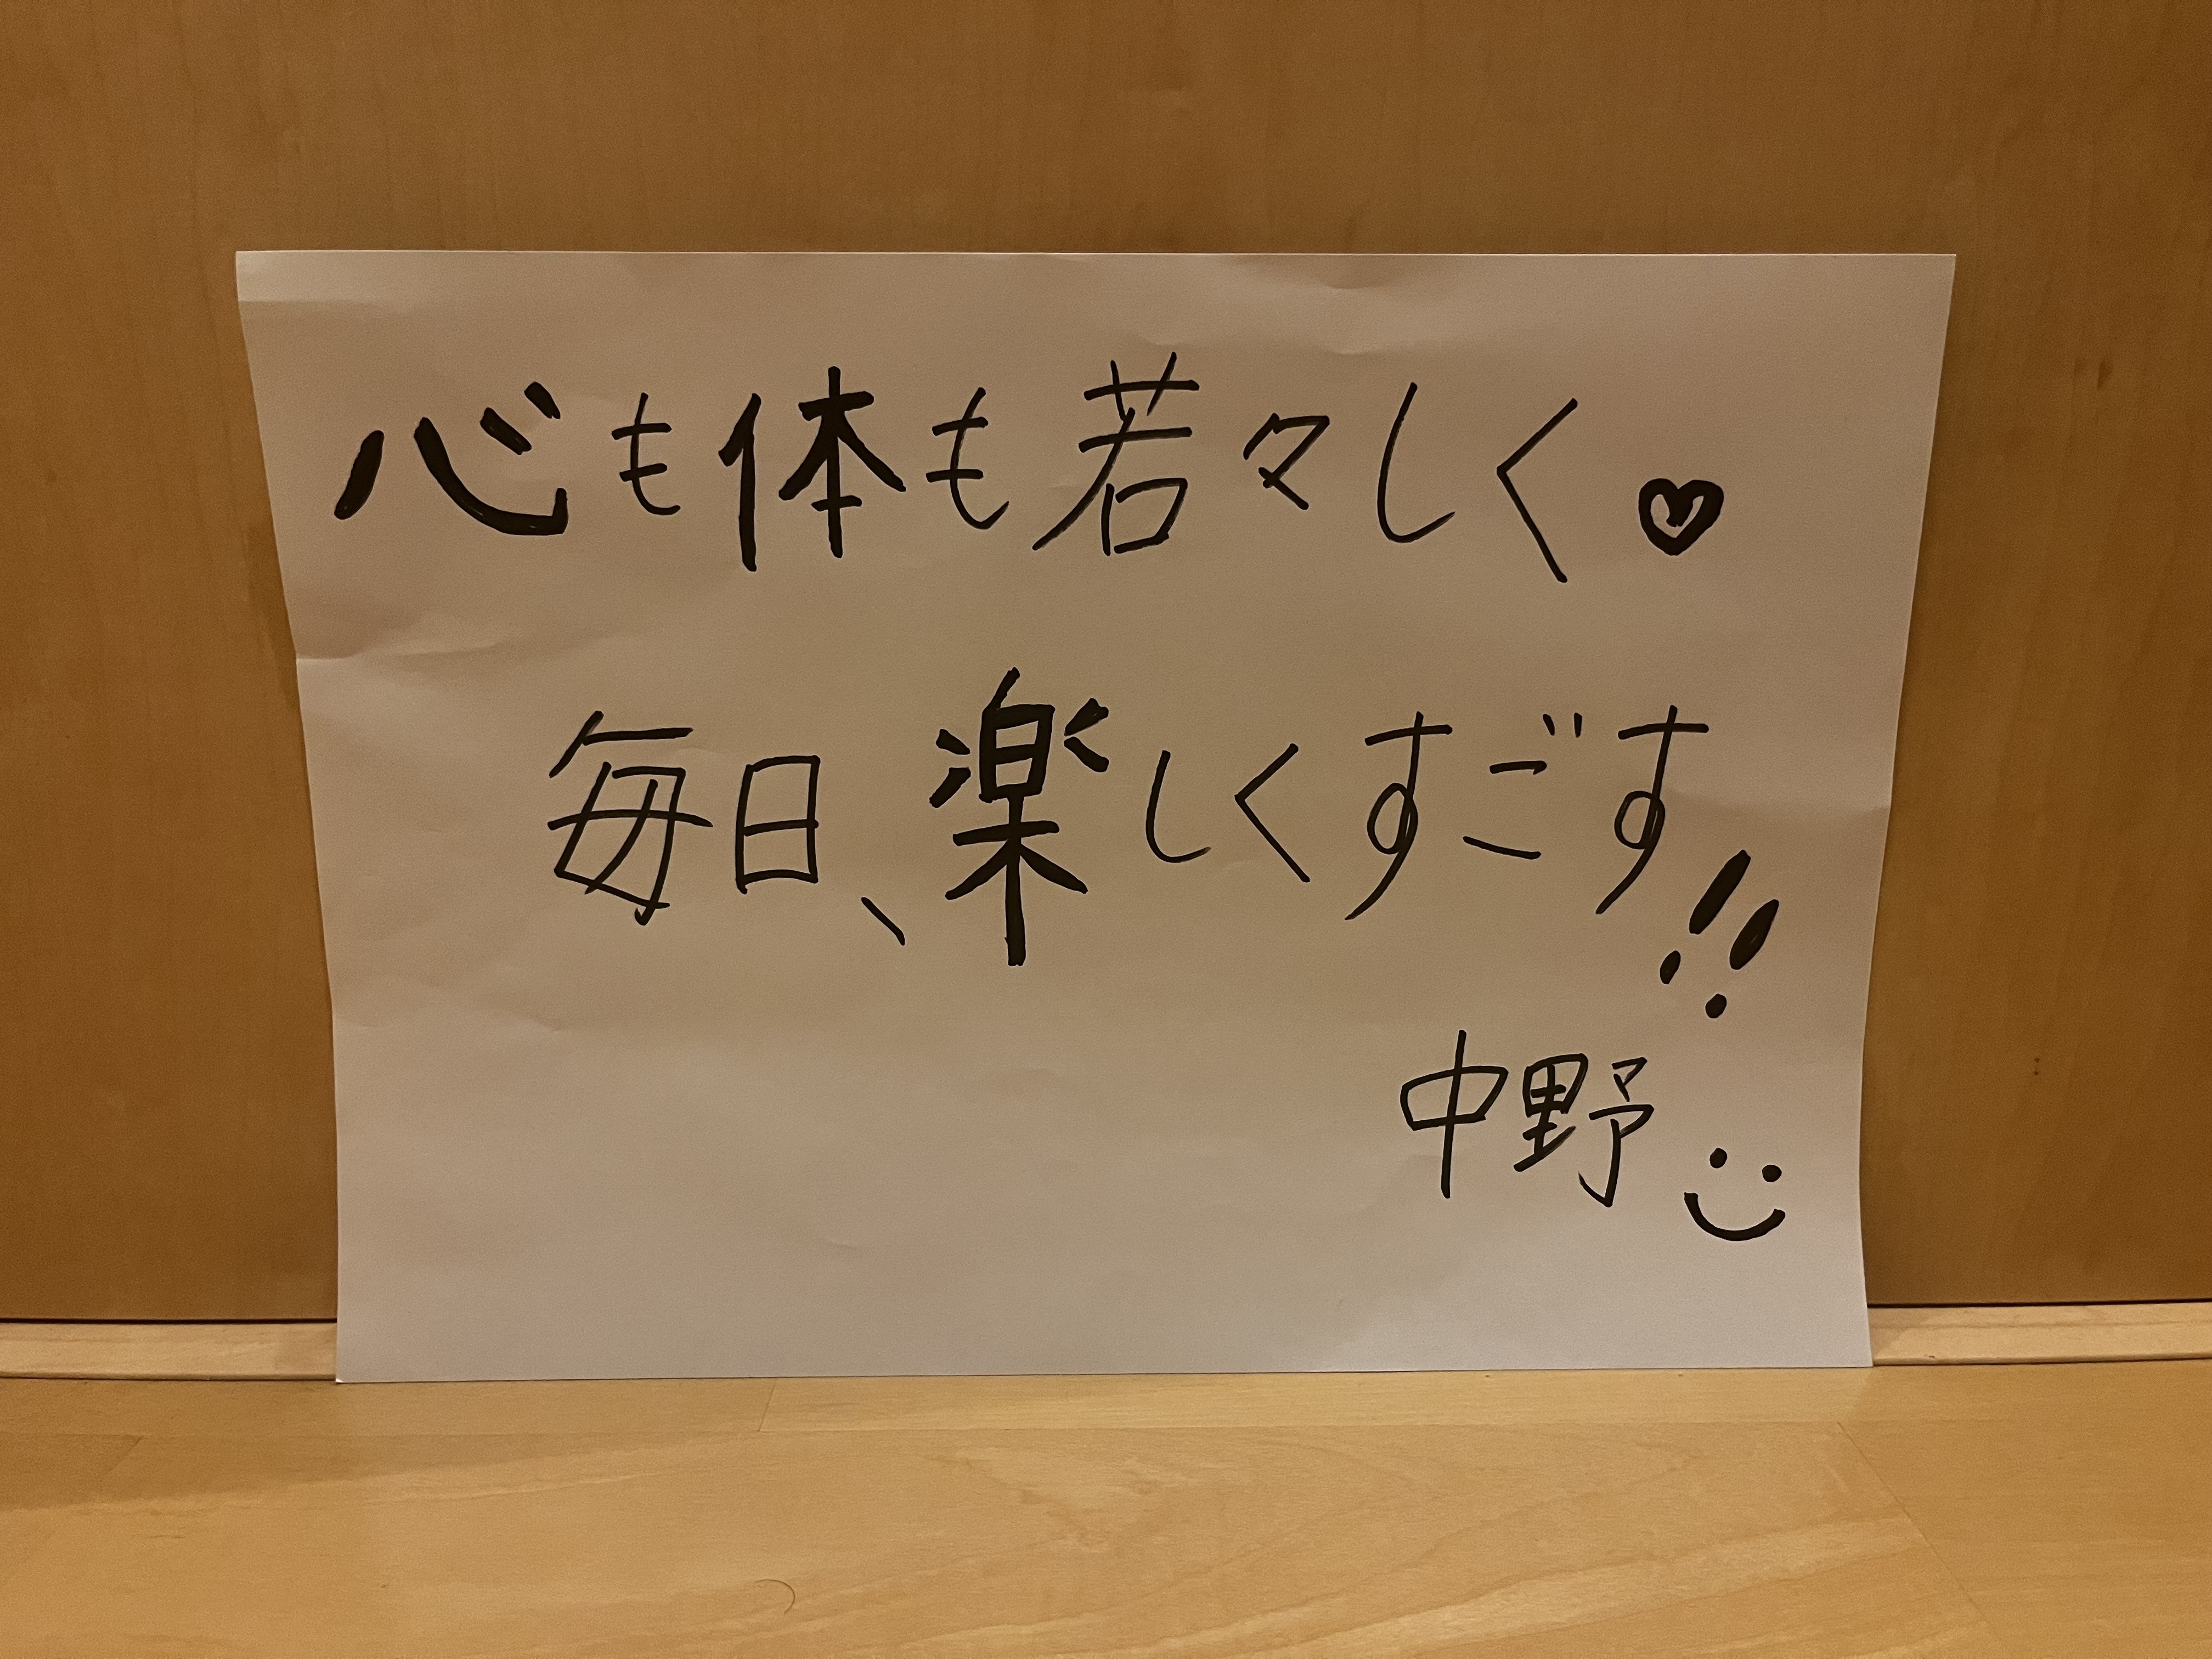 心も体も若々しく♥
毎日、楽しくすごす!!
中野